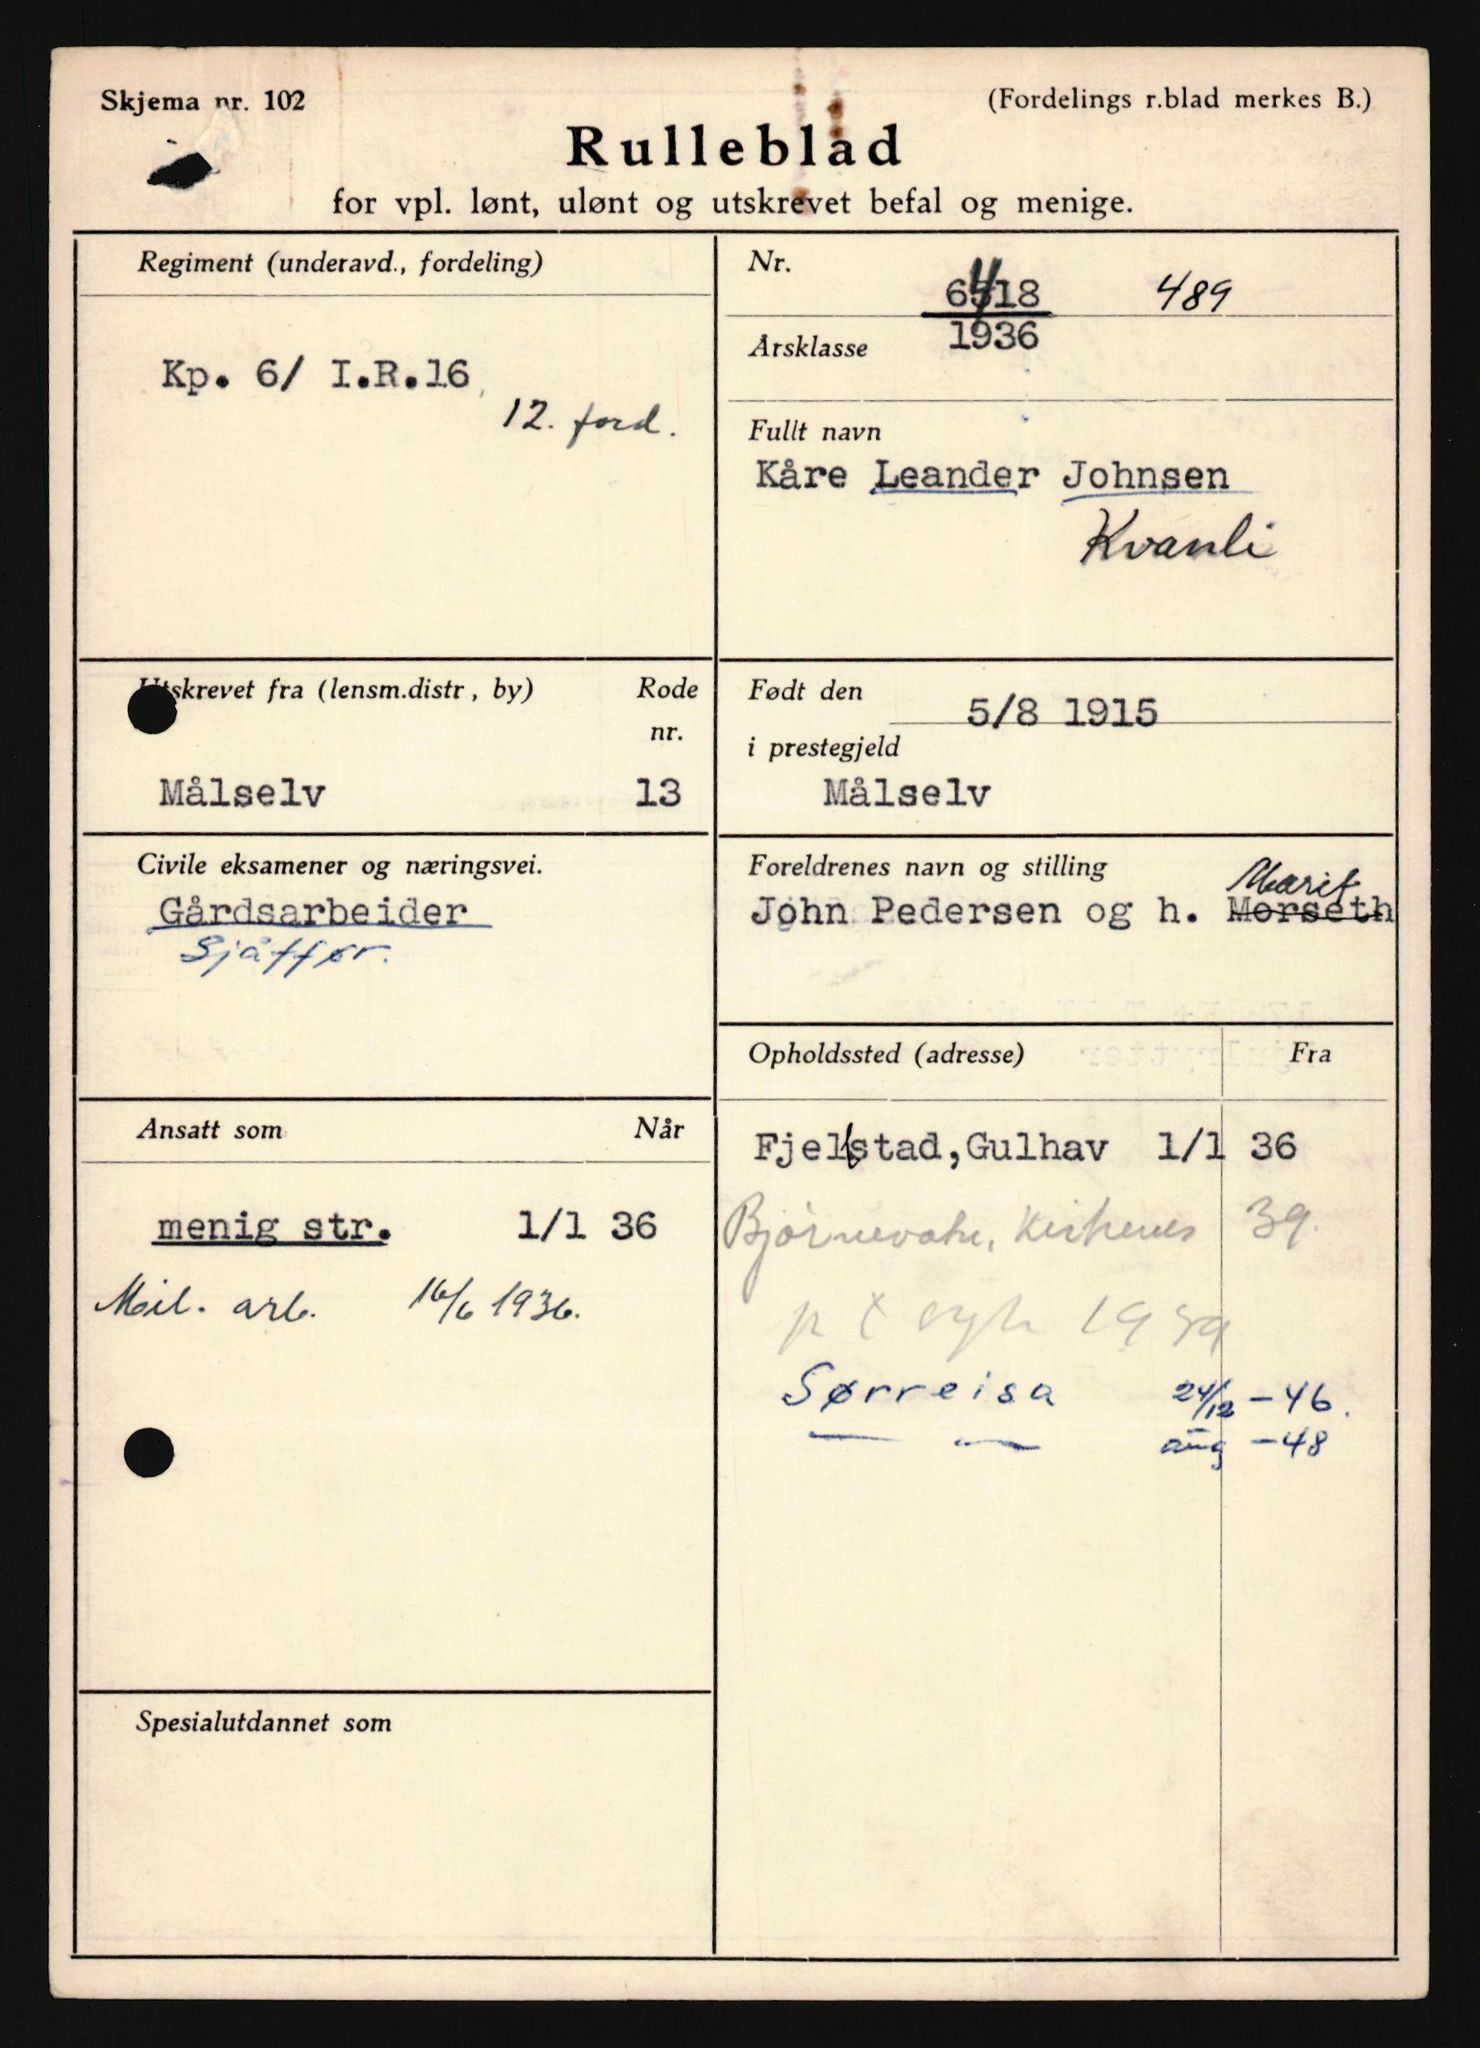 Skjema nr. 102
(Fordelings r.blad merkes B.)
Rulleblad
for vpl. lønt, ulønt og utskrevet befal og menige.
Regiment (underavd., fordeling)
Kp. 6/ I.R.16
12. ford.
Nr.
6418 489
Årsklasse 1936
Fullt navn
Kåre Leander Johnsen
Kvanli
Utskrevet fra (lensm.distr, by) Rode
nr.
Målselv 13
Født den
5/8 1915
i prestegjeld
Målselv
Civile eksamener og næringsvei.
Gårdsarbeider
Sjåffør.
Foreldrenes navn og stilling
Marit
John Pedersen og h. Morseth
Ansatt som Når
menig str. 1/1 36
Mil. arb. 16/6 1936.
Opholdssted (adresse) Fra
Fjellstad, Gulhav 1/1 36
Bjørnevatn, Kirkenes 39.
1939
Sørreisa 24/12 -46.
— — aug -48
Spesialutdannet som